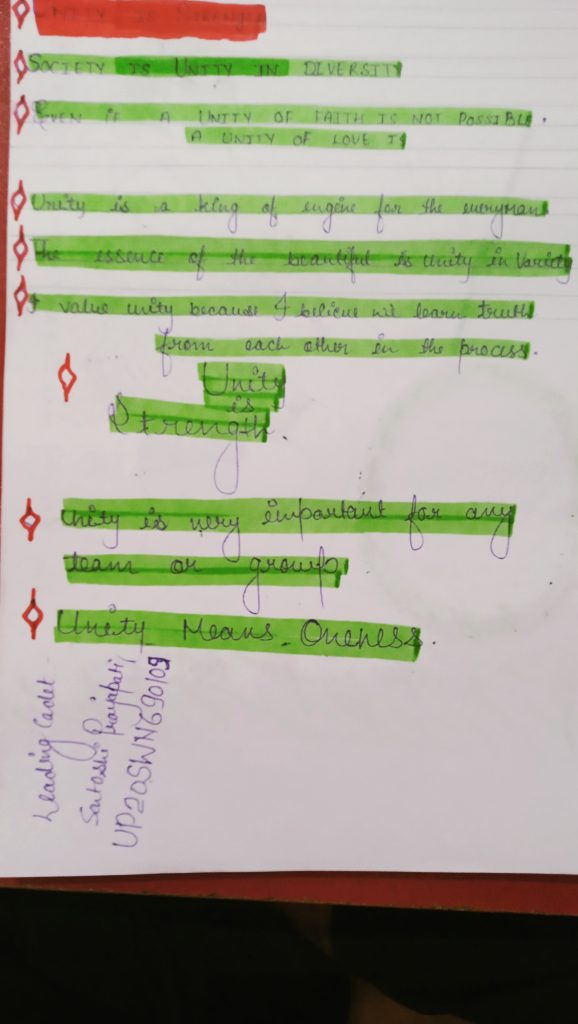 UNITY IS STRENGTH
SOCIETY IS UNITY IN DIVERSITY
EVEN IF A UNITY OF FAITH IS NOT POSSIBLE.
A UNITY OF LOVE IS
Unity is a king of engine for the everyman
The essence of the beautiful is unity in Variety
I value unity because I believe we learn truth
from each other in the process.
Unity
is
Strength.
Unity is very important for any
team or group
Unity Means Oneness.
Leading Cadet
Prajapati,
UP20SWN690109